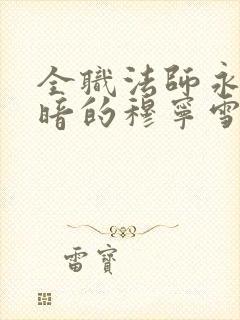 全職法師永
暗的穆寧雪
雷寶